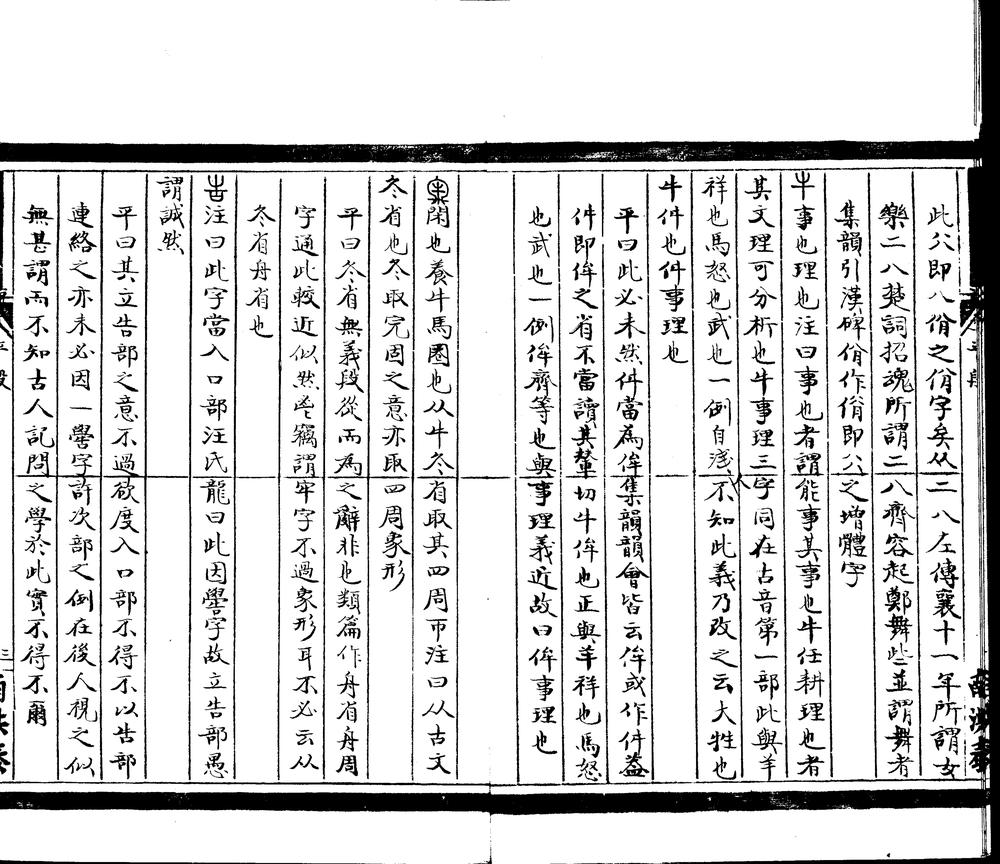 此㕣即八佾之佾字矣从二八左傳襄十一年所謂女
樂二八楚詞招魂所謂二八齊容起鄭舞些並謂舞者
集韻引漢碑佾作㑜即㕣之增體字
牛事也理也注曰事也者謂能事其事也牛任耕理也者
其文理可分析也牛事理三字同在古音第一部此與羊
祥也馬怒也武也一例自淺人不知此義乃改之云大牲也
牛件也件事理也
平曰此必未然件當為侔集韻韻會皆云侔或作件蓋
件即侔之省不當讀其輦切牛侔也正與羊祥也馬怒
也武也一例侔齊等也與事理義近故曰侔事理也
牢閑也養牛馬圈也从牛冬省取其四周帀注曰从古文
冬省也冬取完固之意亦取四周象形
平曰冬省無義段從而為之辭非也類篇作舟省舟周
字通此較近似然巠竊謂牢字不過象形耳不必云从
冬省舟省也
告注曰此字當入口部汪氏龍曰此因嚳字故立告部愚
謂誠然
平曰其立告部之意不過欲度入口部不得不以告部
連絡之亦未必因一嚳字許次部之倒在後人視之似
無甚謂而不知古人記問之學於此實不得不爾
三